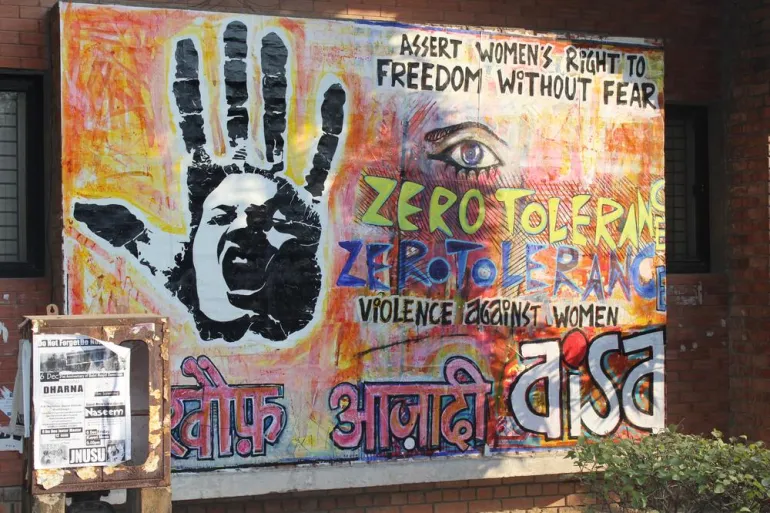 ASSERT WOMEN'S RIGHT TO
FREEDOM WITHOUT FEAR
ZERO TOLERANCE
ZERO TOLERANCE
VIOLENCE AGAINST WOMEN
खौफ़ आज़ादी
aisa
Do Not Forget
6 Dec
DHARNA
Naseem
JNUSU